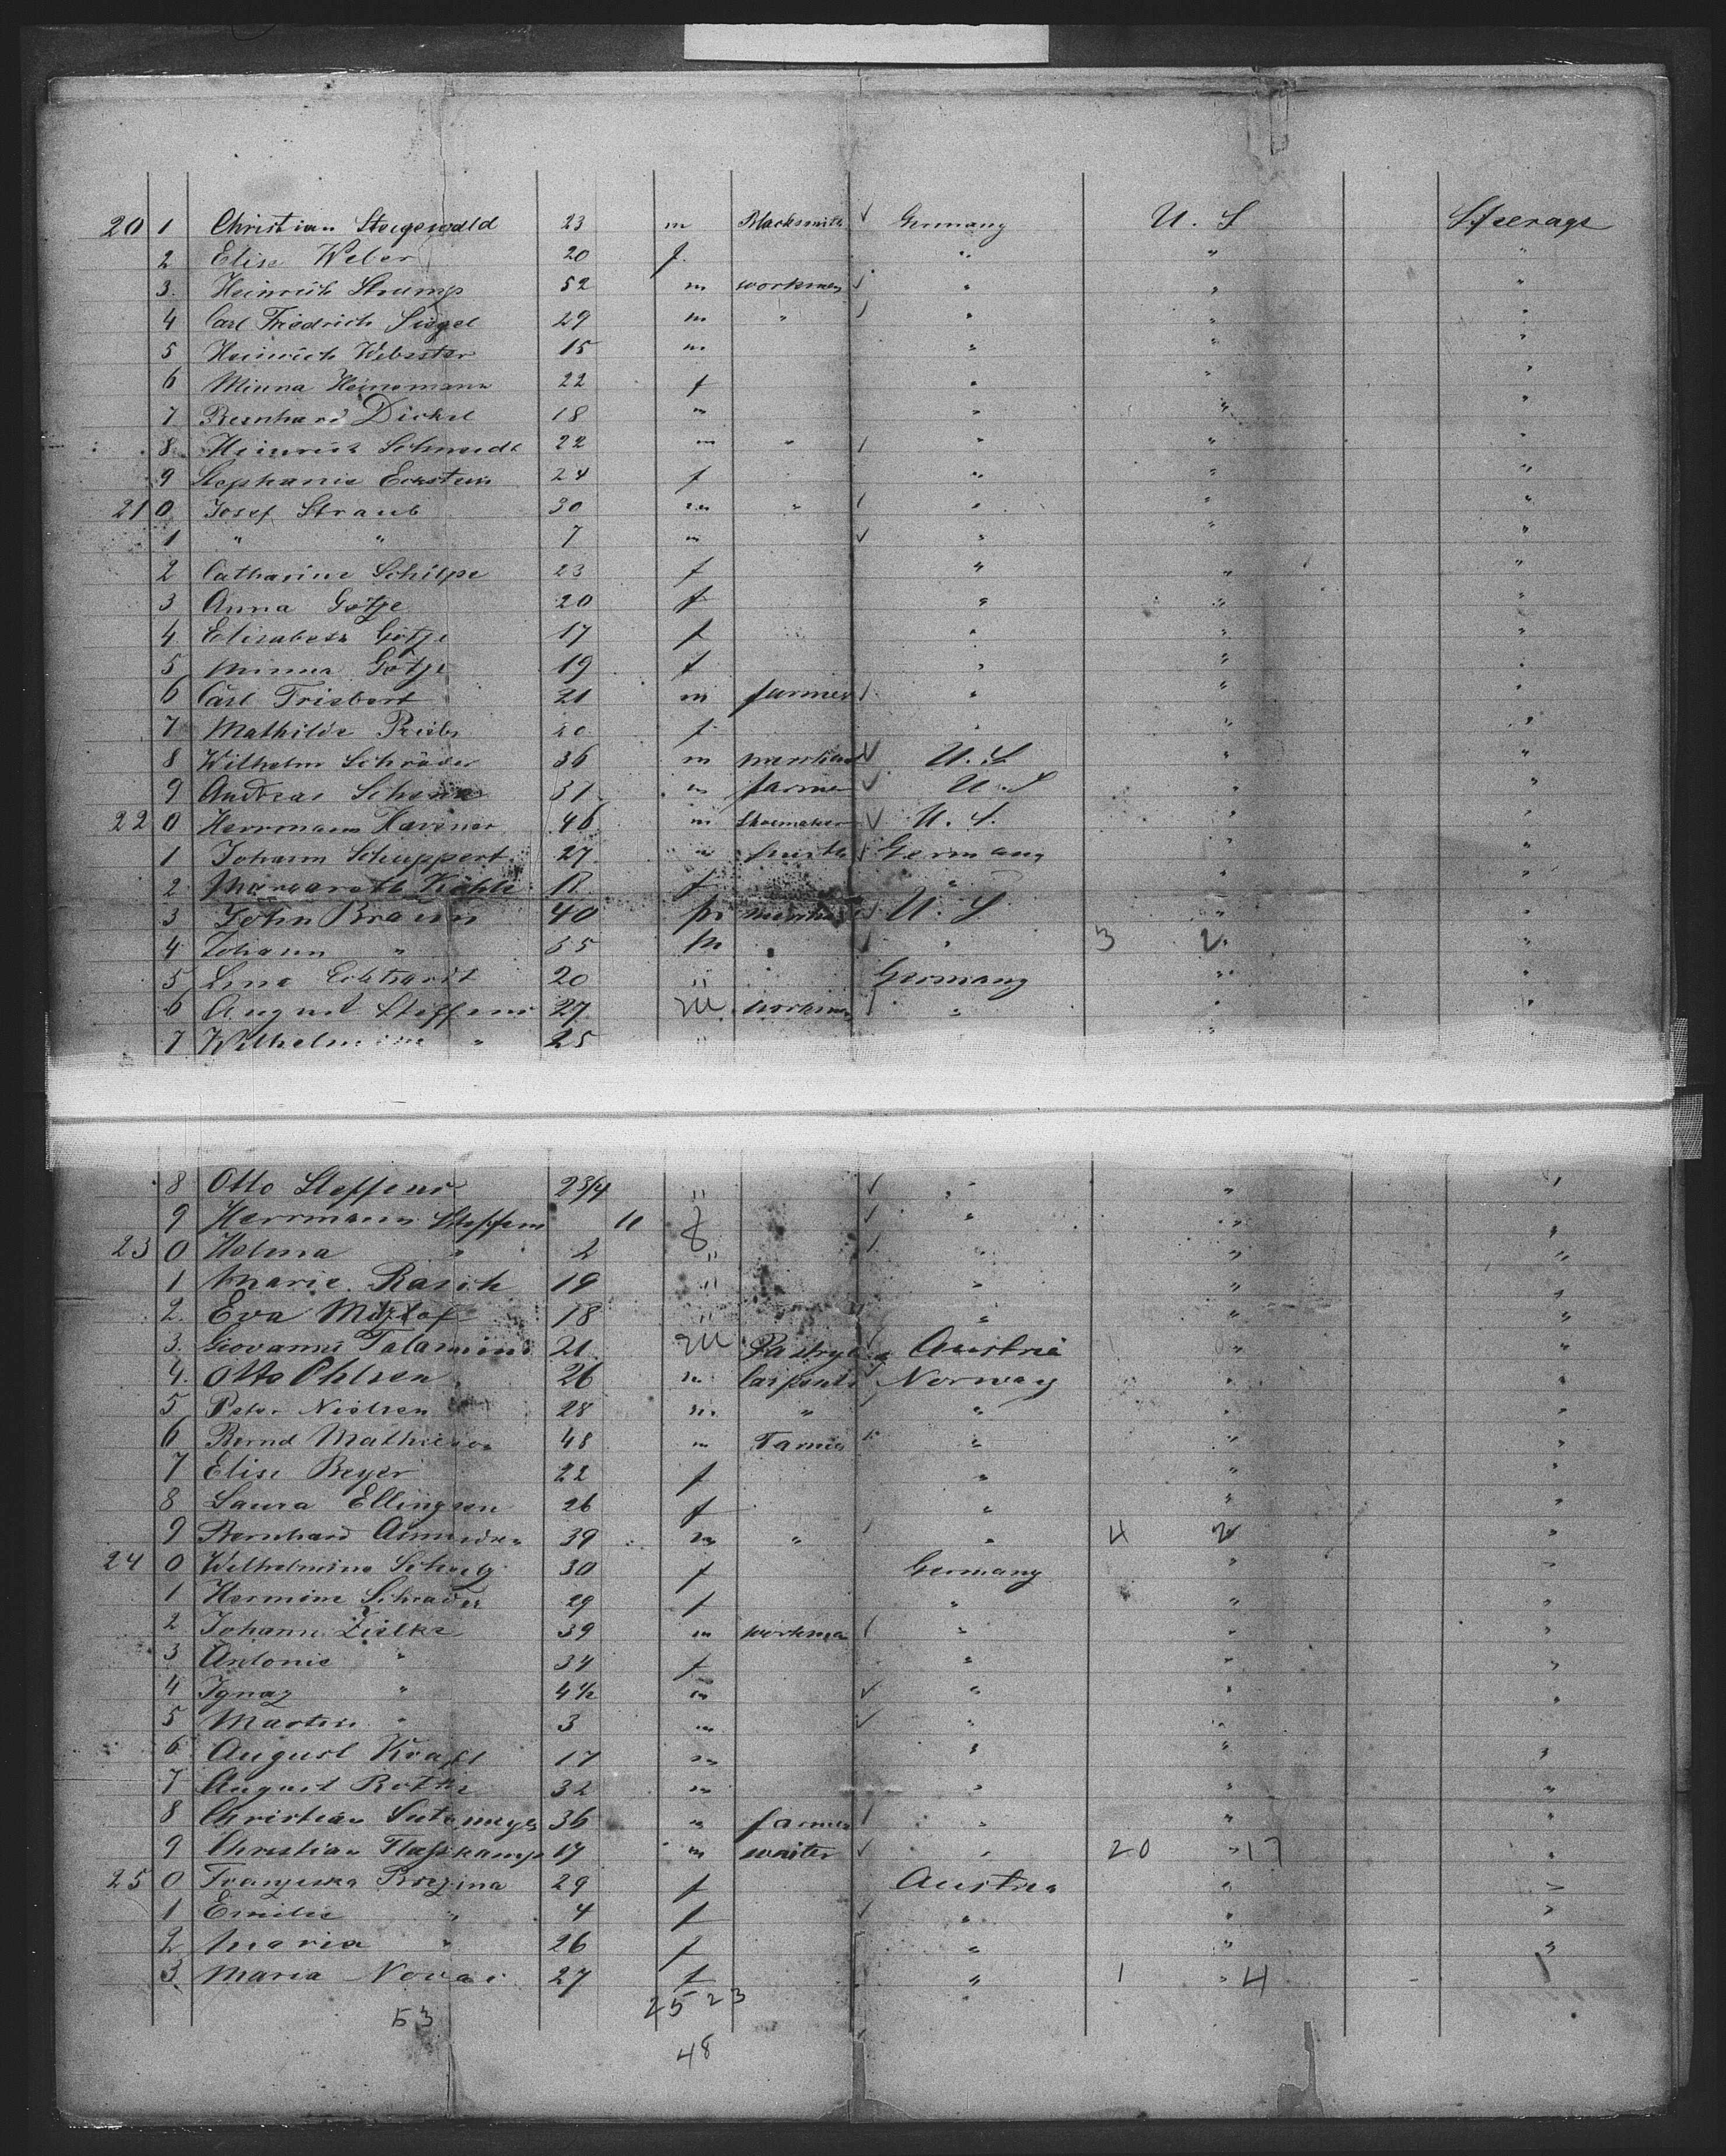 20 1 Christian Stegewald 23 m Blacksmith ✓ Germany U. S Steerage
2 Elise Weber 20 f " " "
3. Heinrich Strump 52 m workmen ✓ " " "
4 Carl Friedrich Siegel 29 m " ✓ " " "
5 Heinrich Webster 15 m " " "
6 Minna Heinemann 22 f " " "
7 Bernhard Dickel 18 " " " "
8 Heinrich Schmidt 22 m " ✓ " " "
9 Stephanie Eckstein 24 f " " "
21 0 Josef Straub 30 m " ✓ " " "
1 " " 7 m ✓ " " "
2 Catharine Schilpe 23 f " " "
3 Anna Götze 20 f " " "
4 Elisabeth Götze 17 f " " "
5 Minna Götze 19 f " " "
6 Carl Frisbert 21 m farmer ✓ " " "
7 Mathilde f " " "
8 Wilhelm Schröder 36 m ✓ U. S. " "
9 Andreas 31 m farmer ✓ U. S " "
22 0 Herrmann 46 m Shoemaker ✓ U. S. " "
1 Johann Schuppert 27 " smith ✓ Germany " "
2 Margareth f " " "
3 John Braun 40 m ✓ U. S " "
4 Johann " 35 m " ✓ " 3 2 " "
5 Lina Eckhardt 20 " Germany " "
6 August Steffens 27 m workman ✓ " " "
7 Wilhelmine " 25 " "
8 Otto Steffens 2 3/4 " ✓ " " "
9 Herrmann Steffens 11 ✓ " " "
23 0 Helma " 2 " ✓ " " "
1 Marie Rasch 19 " " " "
2. Eva 18 " " " "
3. Giovanni Talamini 21 m ✓ Austria " "
4. Otto Ohlsen 26 m Carpenter ✓ Norway " "
5 Peter Nielsen 28 m " ✓ " " "
6 Bernd Mathieson 48 m Farmer ✓ " " "
7 Elise Beyer 22 f " " "
8 Laura Ellingsen 26 f " " "
9 Bernhard 39 m " ✓ " 4 2 "
24 0 Wilhelmine 30 f Germany " "
1 Hermine Schrader 29 f " " "
2 Johann Zielke 39 m workman ✓ " " "
3 Antonie " 34 f " " "
4 Ignaz " 4 1/2 m ✓ " " "
5 Martin " 3 m ✓ " " "
6 August Kraft 17 m " " "
7 August Rothe 32 m " " "
8 Christian 36 " farmer ✓ " " "
9 Christian Flasskamp 17 m waiter ✓ " 20 " 17 "
25 0 Franziska Brezina 29 f Austria " "
1 Emilie " 4 f ✓ " " "
2 Maria " 26 f " " "
3. Maria 27 f " 1 " 4
53 25 23
48